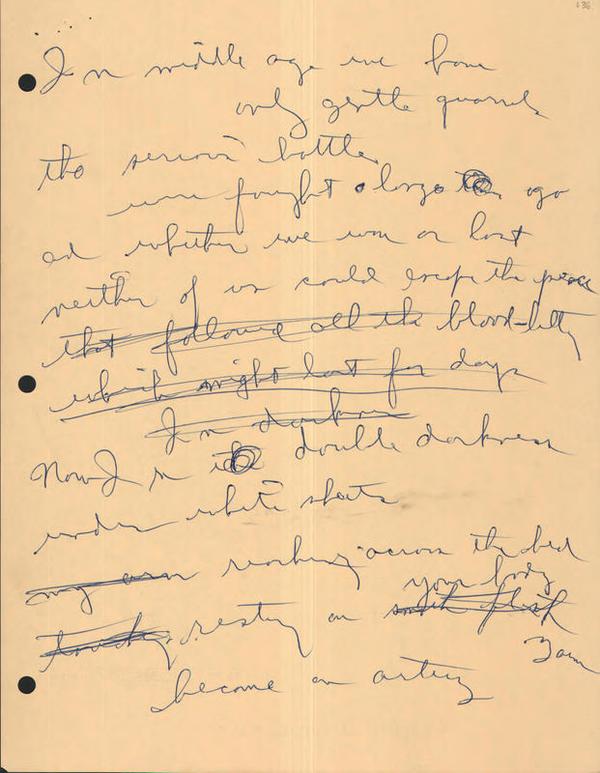 136
In middle age we have
only gentle quarrels
the serious battles
were fought long ago
and whether we won or lost
neither of us could escape the peace
that followed all the blood-letting
which might last for days
In darkness
Now In double darkness
under white sheets
my arm reaching across the bed
your body
touching resting on
I am
become an artery